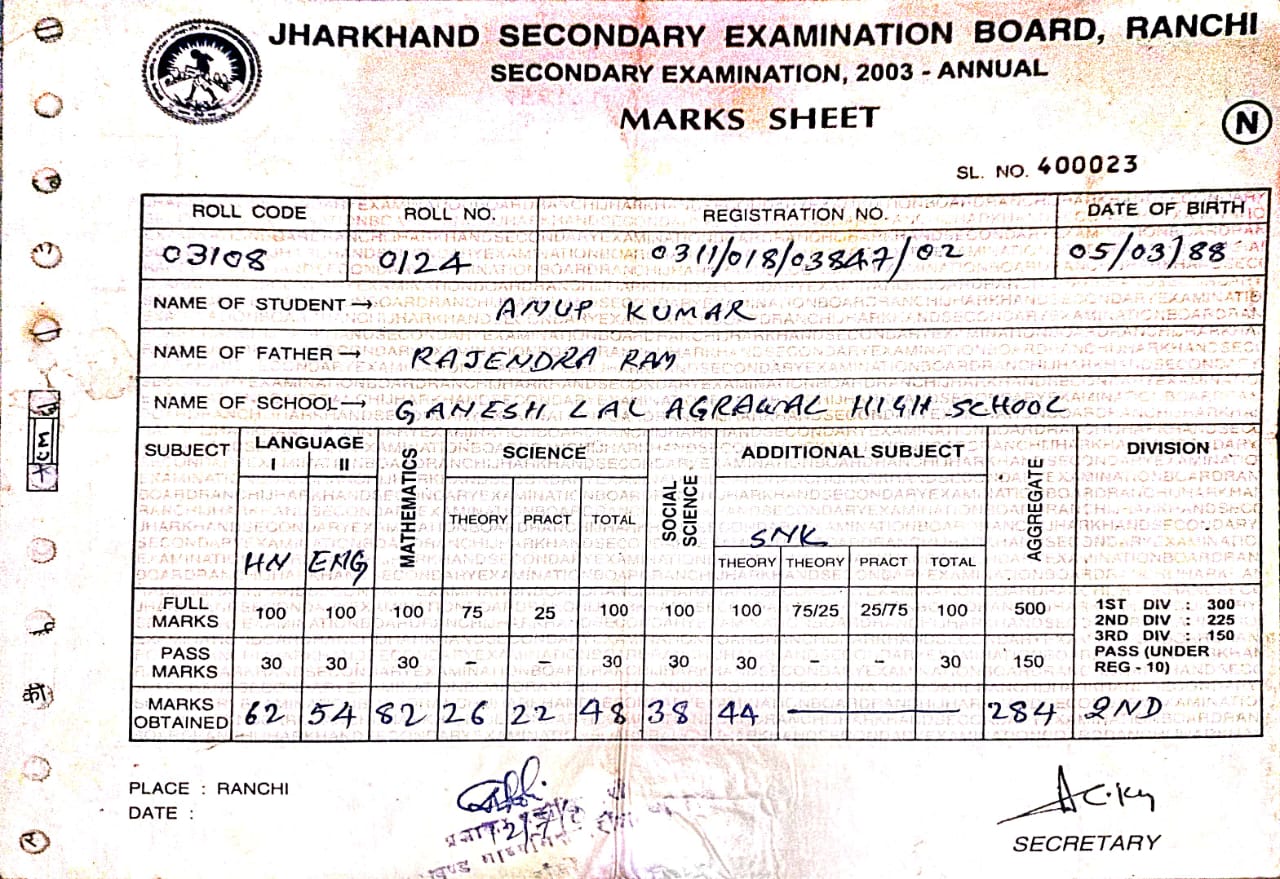 JHARKHAND SECONDARY EXAMINATION BOARD, RANCHI
SECONDARY EXAMINATION, 2003 - ANNUAL
MARKS SHEET
N
SL. NO. 400023
ROLL CODE ROLL NO. REGISTRATION NO. DATE OF BIRTH
03108 0124 0311/018/03847/02 05/03/88
NAME OF STUDENT → ANUP KUMAR
NAME OF FATHER → RAJENDRA RAM
NAME OF SCHOOL → GANESH LAL AGRAWAL HIGH SCHOOL
SUBJECT LANGUAGE MATHEMATICS SCIENCE SOCIAL SCIENCE ADDITIONAL SUBJECT AGGREGATE DIVISION
I II
THEORY PRACT TOTAL
HN ENG SNK
THEORY THEORY PRACT TOTAL
FULL MARKS 100 100 100 75 25 100 100 100 75/25 25/75 100 500
PASS MARKS 30 30 30 – – 30 30 30 – – 30 150
1ST DIV : 300
2ND DIV : 225
3RD DIV : 150
PASS (UNDER
REG - 10)
MARKS OBTAINED 62 54 82 26 22 48 38 44 — 284 2ND
PLACE : RANCHI
DATE :
SECRETARY